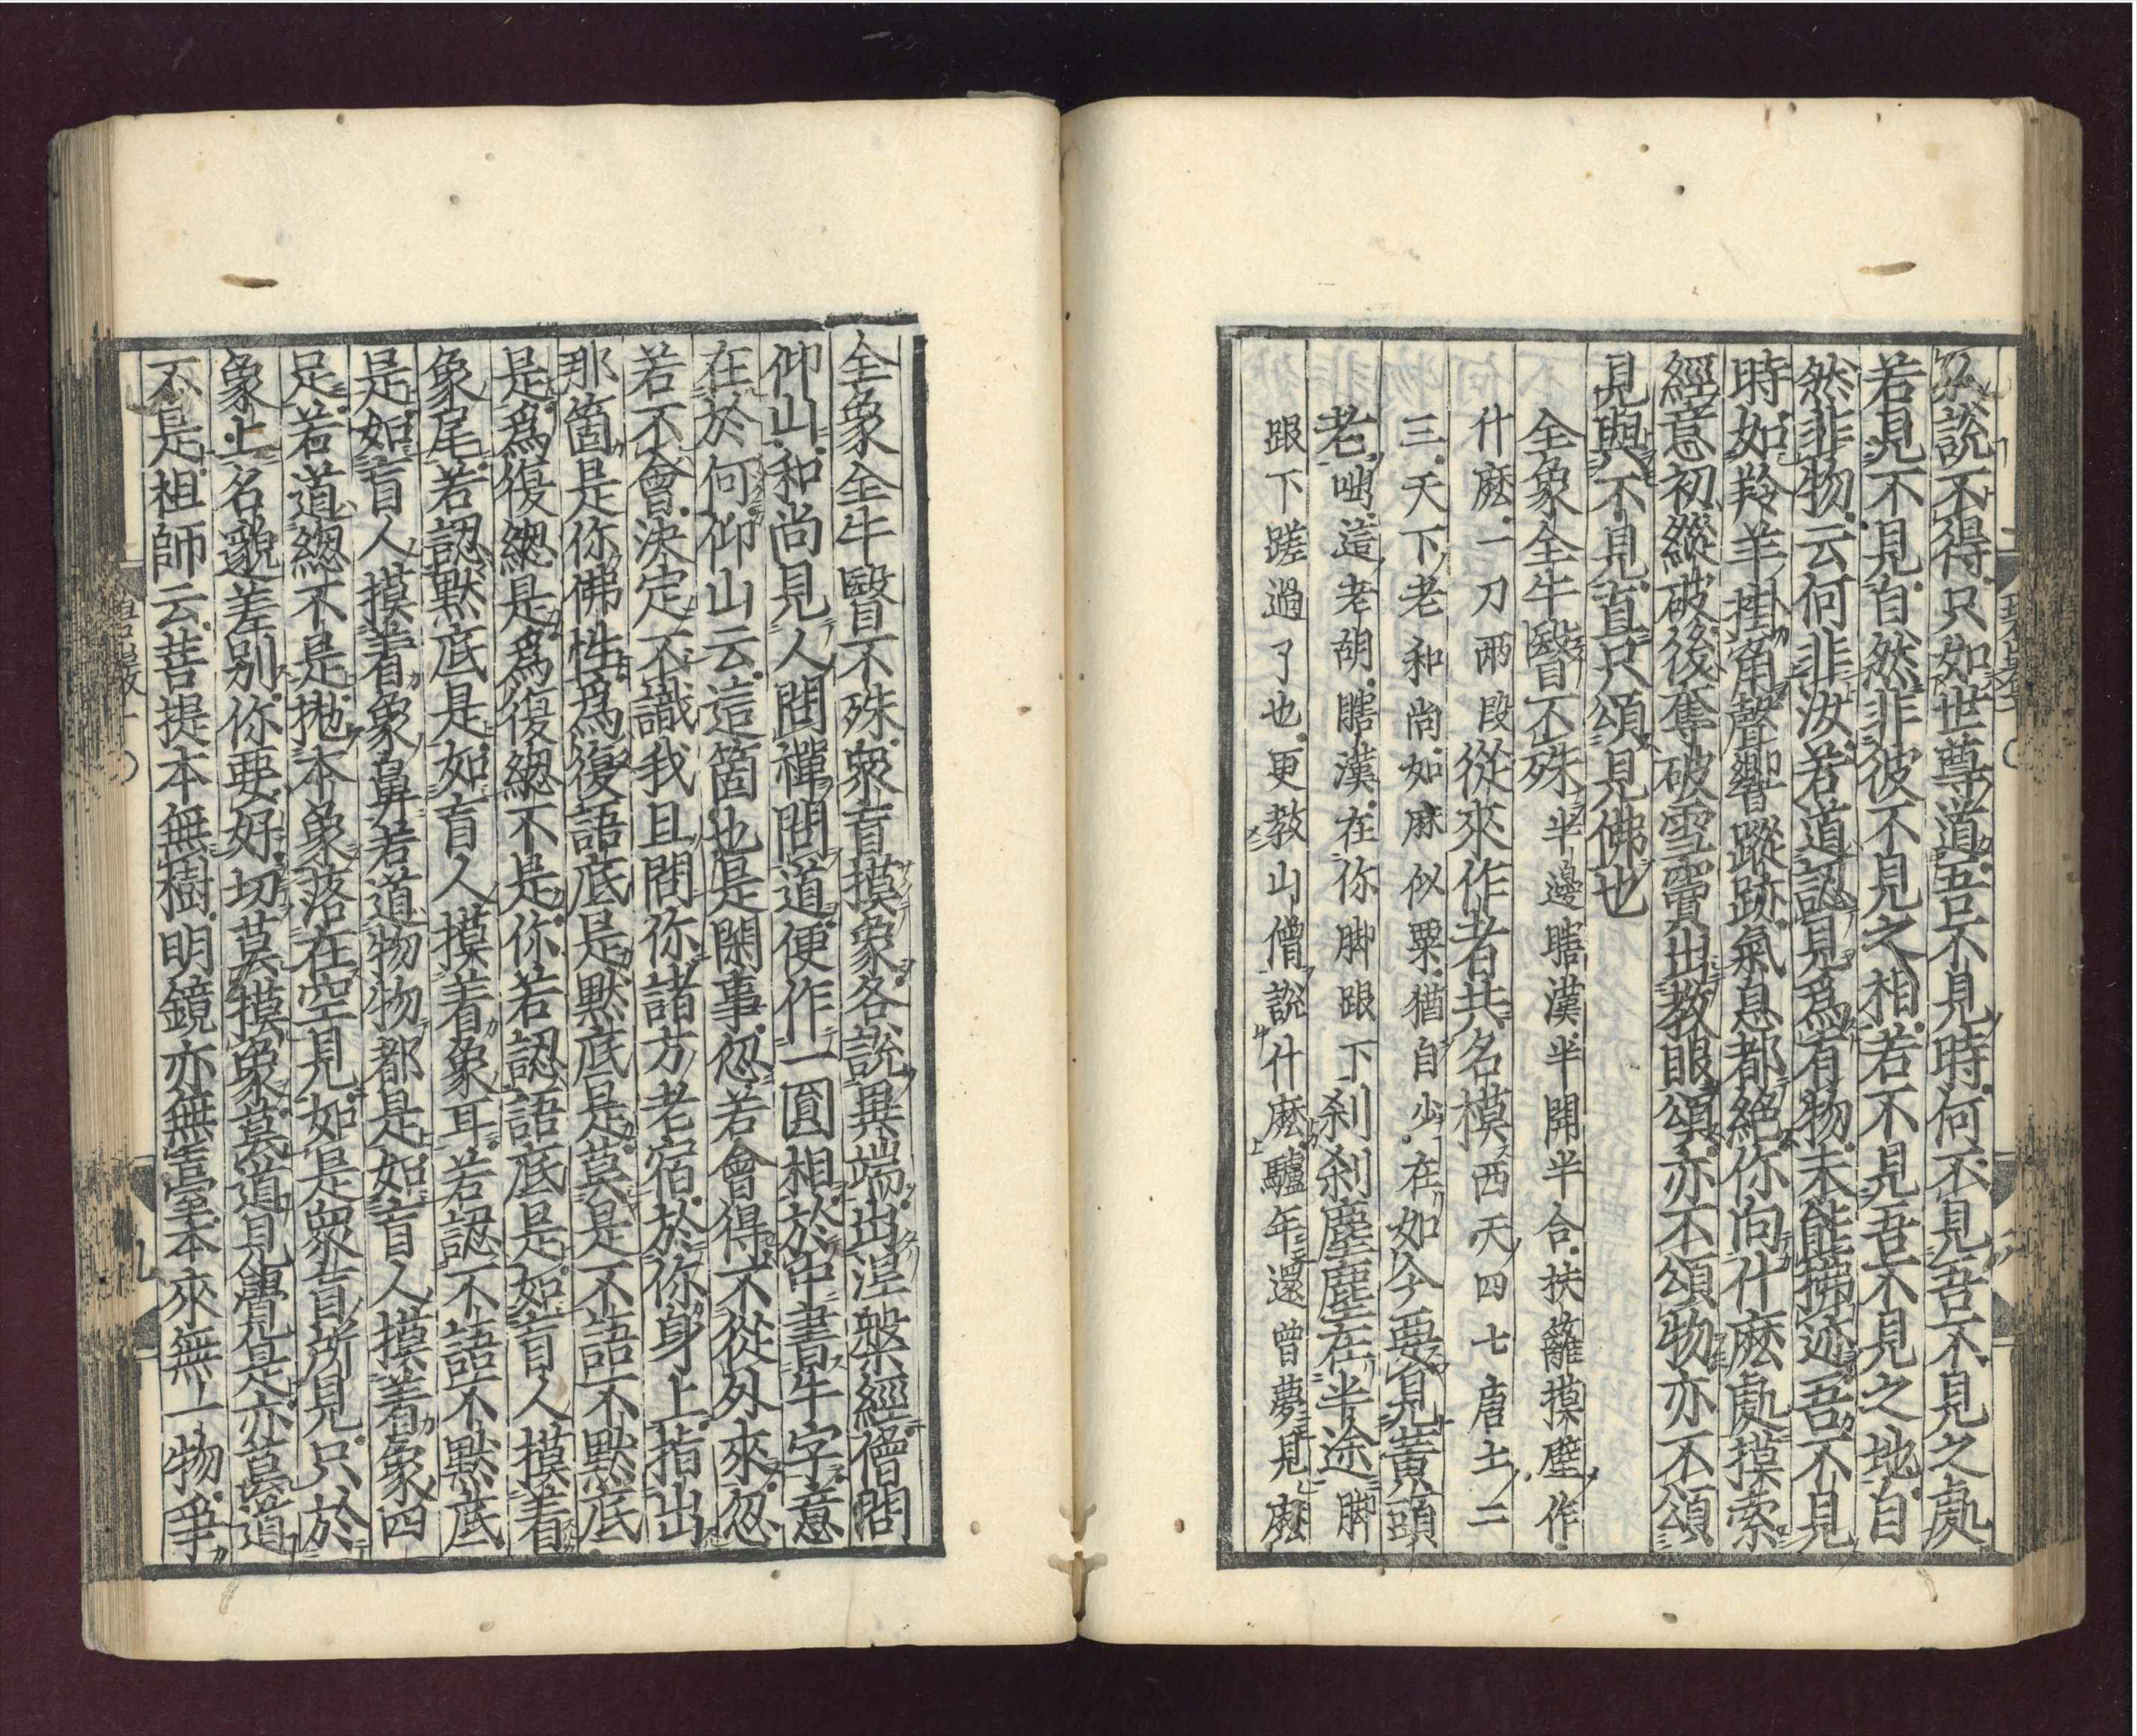 說不得只如世尊道吾不見時何不見吾不見之處
若見不見自然非彼不見之相若不見吾不見之地自
然非物云何非汝若道認見爲有物未能拂迹吾不見
時如羚羊掛角聲響蹤跡氣息都絕你向什麽處摸索
經意初縱破後奪破雪竇出教眼頌亦不頌物亦不頌
見與不見直只頌見佛也
全象全牛瞖不殊半邊瞎漢半開半合扶籬摸壁作
什麽一刀兩段從來作者共名模西天四七唐土二
三天下老和尚如麻似粟猶自少在如今要見黃頭
老咄這老胡瞎漢在你脚跟下刹刹塵塵在半途脚
跟下蹉過了也更教山僧說什麽驢年還曾夢見麽
全象全牛瞖不殊衆盲摸象各說異端出涅槃經僧問
仰山和尚見人問禪問道便作一圓相於中書牛字意
在於何仰山云這箇也是閑事忽若會得不從外來忽
若不會決定不識我且問你諸方老宿於你身上指出
那箇是你佛性爲復語底是默底是莫是不語不默底
是爲復總是爲復總不是你若認語底是如盲人摸着
象尾若認默底是如盲人摸着象耳若認不語不默底
是如盲人摸着象鼻若道物物都是如盲人摸着象四
足若道總不是拋本象落在空見如是衆盲所見只於
象上名邈差別你要好切莫摸象莫道見覺是亦莫道
不是祖師云菩提本無樹明鏡亦無臺本來無一物爭